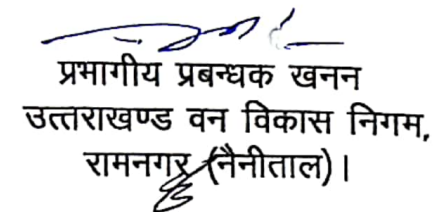 प्रभागीय प्रबन्धक खनन
उत्तराखण्ड वन विकास निगम,
रामनगर (नैनीताल)।